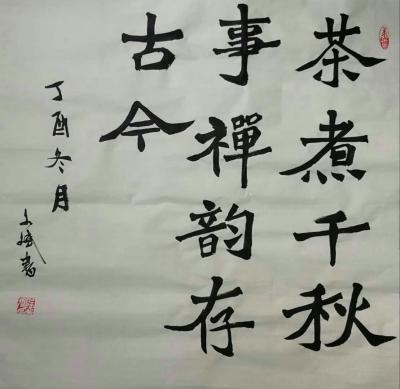 茶煮千秋
事禪韵存
古今
丁酉冬月
书